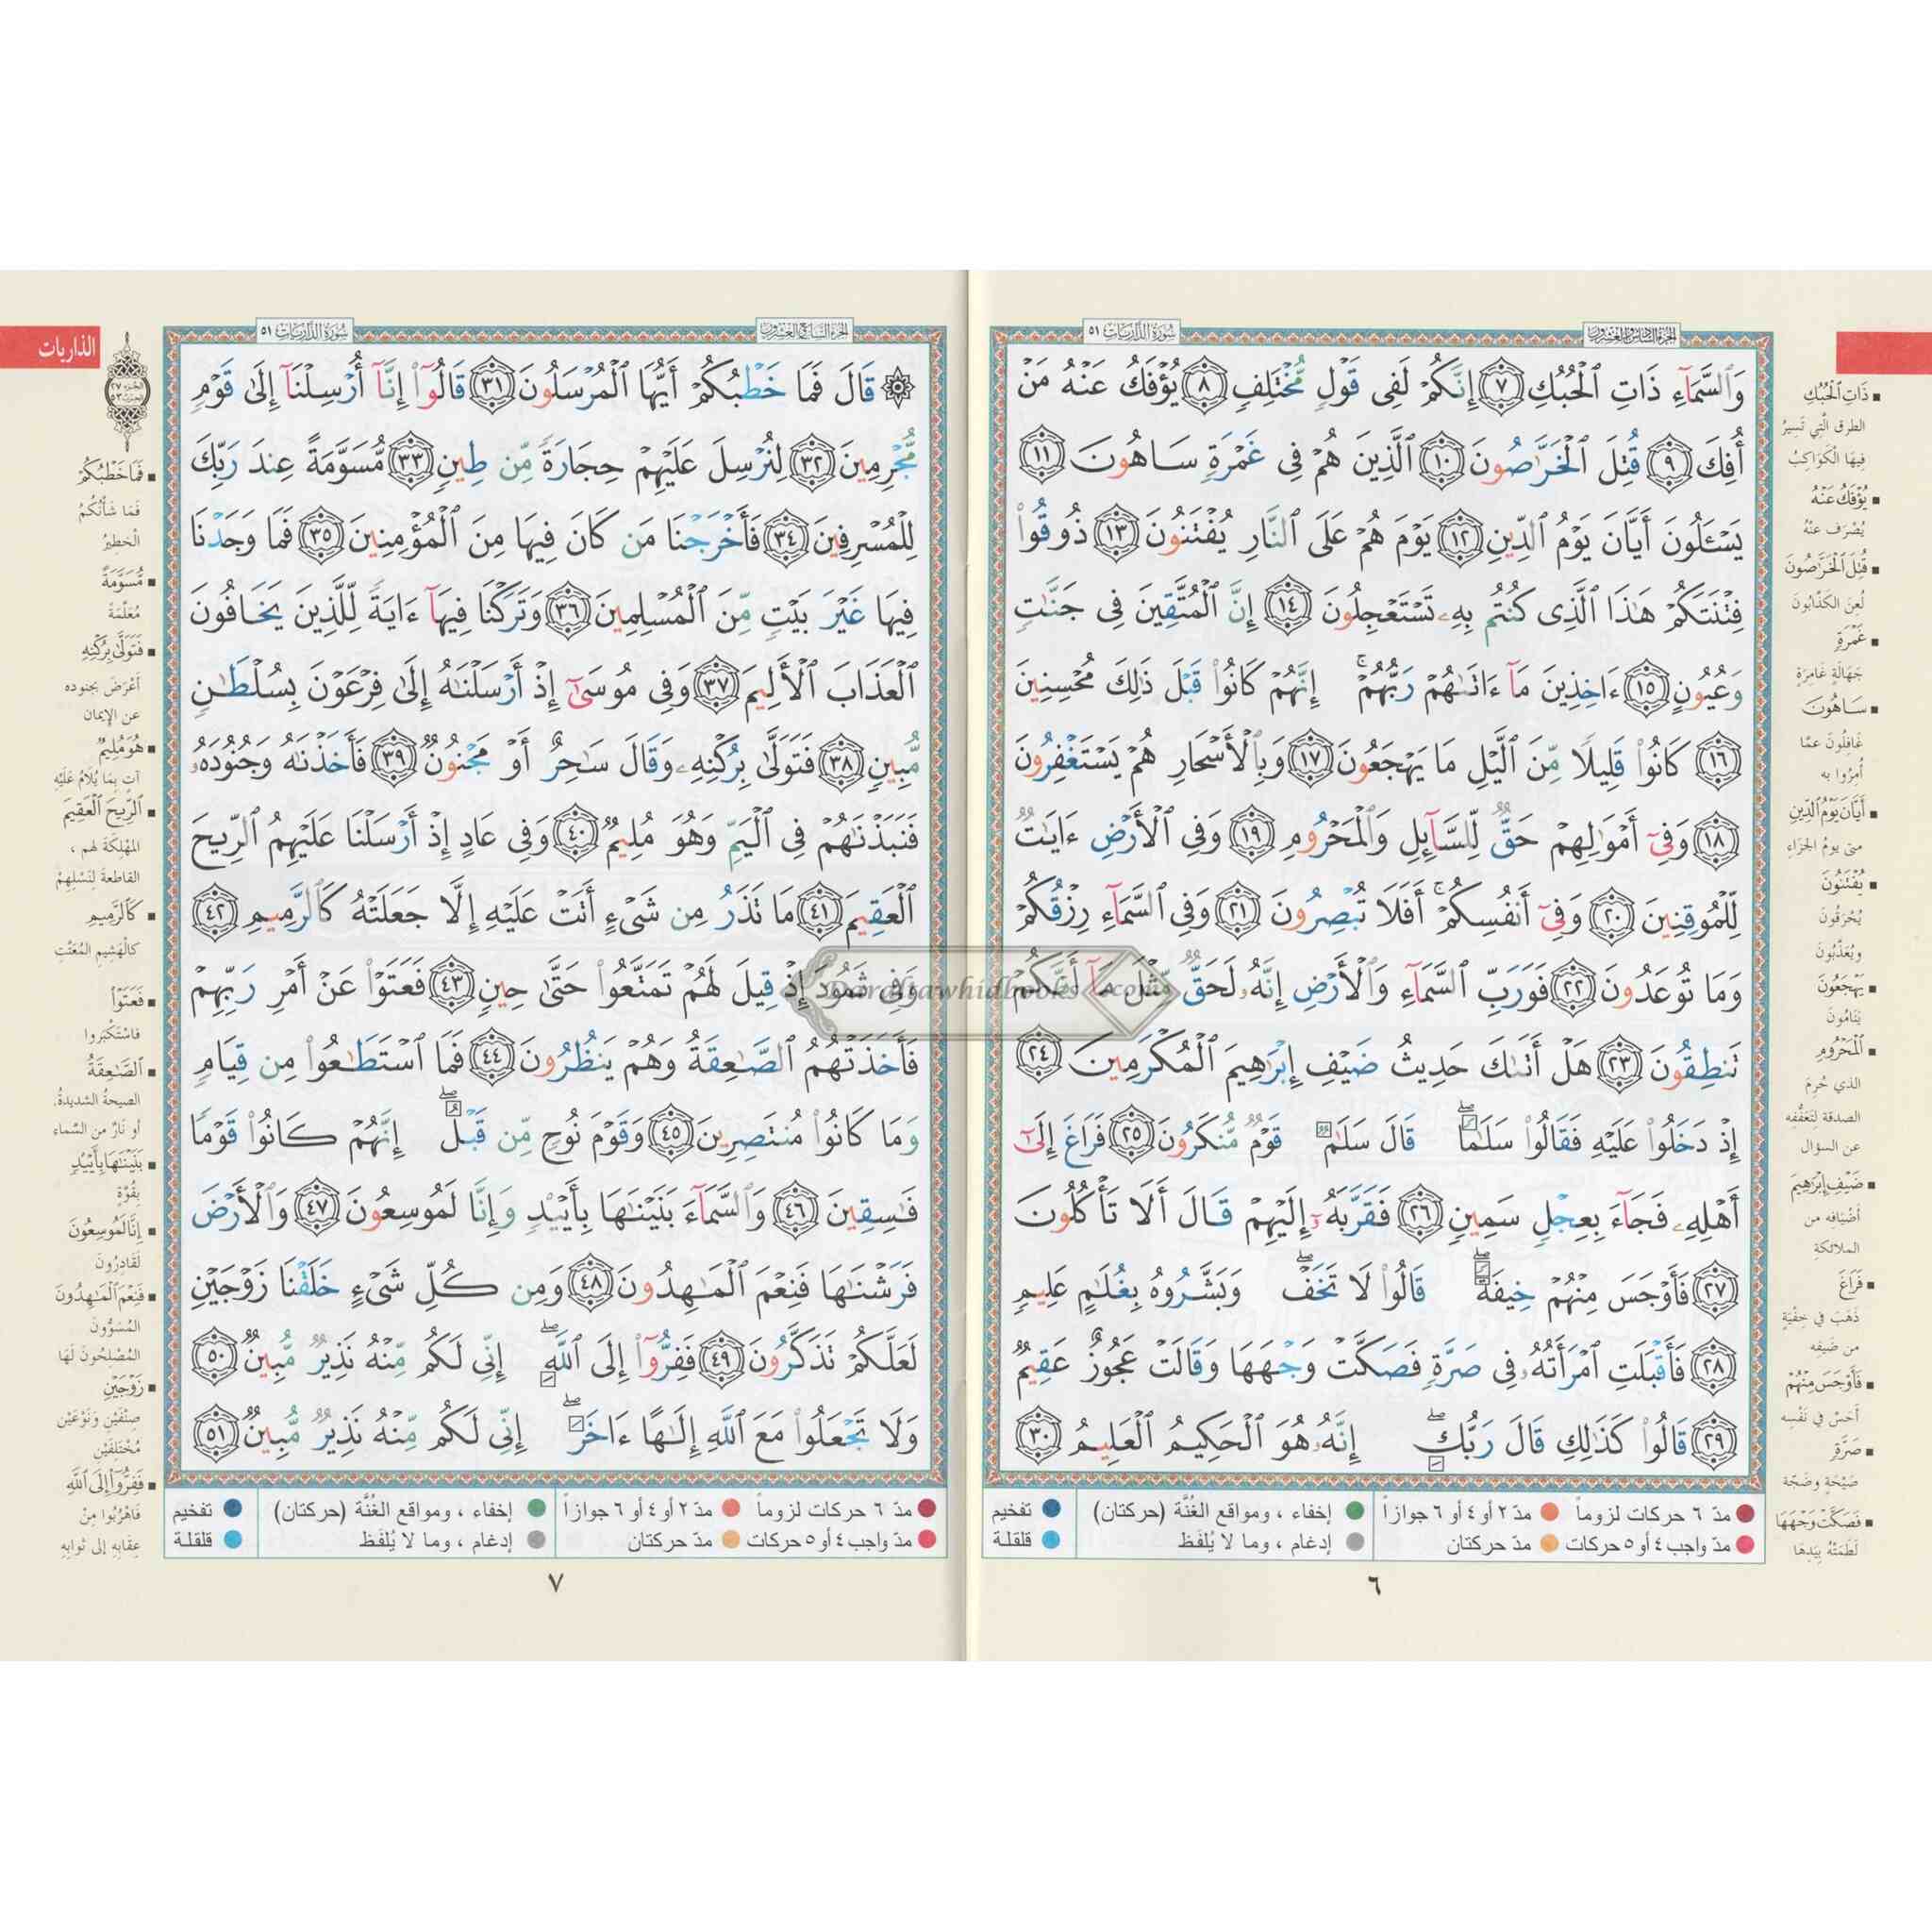 الجزء السادس والعشرون
سورة الذاريات ٥١
وَٱلسَّمَآءِ ذَاتِ ٱلْحُبُكِ ٧ إِنَّكُمْ لَفِى قَوْلٍ مُّخْتَلِفٍ ٨ يُؤْفَكُ عَنْهُ مَنْ
أُفِكَ ٩ قُتِلَ ٱلْخَرَّٰصُونَ ١٠ ٱلَّذِينَ هُمْ فِى غَمْرَةٍ سَاهُونَ ١١
يَسْـَٔلُونَ أَيَّانَ يَوْمُ ٱلدِّينِ ١٢ يَوْمَ هُمْ عَلَى ٱلنَّارِ يُفْتَنُونَ ١٣ ذُوقُوا۟
فِتْنَتَكُمْ هَٰذَا ٱلَّذِى كُنتُم بِهِۦ تَسْتَعْجِلُونَ ١٤ إِنَّ ٱلْمُتَّقِينَ فِى جَنَّٰتٍ
وَعُيُونٍ ١٥ ءَاخِذِينَ مَآ ءَاتَىٰهُمْ رَبُّهُمْ ۚ إِنَّهُمْ كَانُوا۟ قَبْلَ ذَٰلِكَ مُحْسِنِينَ
١٦ كَانُوا۟ قَلِيلًا مِّنَ ٱلَّيْلِ مَا يَهْجَعُونَ ١٧ وَبِٱلْأَسْحَارِ هُمْ يَسْتَغْفِرُونَ
١٨ وَفِىٓ أَمْوَٰلِهِمْ حَقٌّ لِّلسَّآئِلِ وَٱلْمَحْرُومِ ١٩ وَفِى ٱلْأَرْضِ ءَايَٰتٌ
لِّلْمُوقِنِينَ ٢٠ وَفِىٓ أَنفُسِكُمْ ۚ أَفَلَا تُبْصِرُونَ ٢١ وَفِى ٱلسَّمَآءِ رِزْقُكُمْ
وَمَا تُوعَدُونَ ٢٢ فَوَرَبِّ ٱلسَّمَآءِ وَٱلْأَرْضِ إِنَّهُۥ لَحَقٌّ مِّثْلَ مَآ أَنَّكُمْ
تَنطِقُونَ ٢٣ هَلْ أَتَىٰكَ حَدِيثُ ضَيْفِ إِبْرَٰهِيمَ ٱلْمُكْرَمِينَ ٢٤
إِذْ دَخَلُوا۟ عَلَيْهِ فَقَالُوا۟ سَلَٰمًا ۖ قَالَ سَلَٰمٌ قَوْمٌ مُّنكَرُونَ ٢٥ فَرَاغَ إِلَىٰٓ
أَهْلِهِۦ فَجَآءَ بِعِجْلٍ سَمِينٍ ٢٦ فَقَرَّبَهُۥٓ إِلَيْهِمْ قَالَ أَلَا تَأْكُلُونَ
٢٧ فَأَوْجَسَ مِنْهُمْ خِيفَةً ۖ قَالُوا۟ لَا تَخَفْ ۖ وَبَشَّرُوهُ بِغُلَٰمٍ عَلِيمٍ
٢٨ فَأَقْبَلَتِ ٱمْرَأَتُهُۥ فِى صَرَّةٍ فَصَكَّتْ وَجْهَهَا وَقَالَتْ عَجُوزٌ عَقِيمٌ
٢٩ قَالُوا۟ كَذَٰلِكِ قَالَ رَبُّكِ ۖ إِنَّهُۥ هُوَ ٱلْحَكِيمُ ٱلْعَلِيمُ ٣٠
ذَاتِ ٱلْحُبُكِ
الطرق الّتِي تَسِيرُ
فِيهَا الْكَوَاكِبُ
يُؤْفَكُ عَنْهُ
يُصْرَف عَنْهُ
قُتِلَ ٱلْخَرَّٰصُونَ
لُعِنَ الكَذّابُونَ
غَمْرَةٍ
جَهَالَةٍ غَامِرَةٍ
سَاهُونَ
غَافِلُونَ عمّا
أُمِرُوا به
أَيَّانَ يَوْمُ ٱلدِّينِ
متى يومُ الجزَاءِ
يُفْتَنُونَ
يُحْرَقُونَ
ويُعَذَّبُونَ
يَهْجَعُونَ
يَنَامُونَ
ٱلْمَحْرُومِ
الذي حُرِمَ
الصدقة لِتَعَفُّفه
عن السؤال
ضَيْفِ إِبْرَٰهِيمَ
أضْيَافه من
الملائكةِ
فَرَاغَ
ذَهَبَ في خِفْيَةٍ
من ضَيفِه
فَأَوْجَسَ مِنْهُمْ
أحَسّ في نَفْسِه
صَرَّةٍ
صَيْحَةٍ وضَجّة
فَصَكَّتْ وَجْهَهَا
لَطَمَتْهُ بِيَدِهَا
مدّ ٦ حركات لزوماً مدّ ٢ أو ٤ أو ٦ جوازاً إخفاء ، ومواقع الغُنَّة (حركتان) تفخيم
مدّ واجب ٤ أو ٥ حركات مدّ حركتان إدغام ، وما لا يُلفَظ قلقلة
٦
الجزء السابع والعشرون
سورة الذاريات ٥١
الذاريات
الجزء ٢٧
الحزب ٥٣
۞ قَالَ فَمَا خَطْبُكُمْ أَيُّهَا ٱلْمُرْسَلُونَ ٣١ قَالُوٓا۟ إِنَّآ أُرْسِلْنَآ إِلَىٰ قَوْمٍ
مُّجْرِمِينَ ٣٢ لِنُرْسِلَ عَلَيْهِمْ حِجَارَةً مِّن طِينٍ ٣٣ مُّسَوَّمَةً عِندَ رَبِّكَ
لِلْمُسْرِفِينَ ٣٤ فَأَخْرَجْنَا مَن كَانَ فِيهَا مِنَ ٱلْمُؤْمِنِينَ ٣٥ فَمَا وَجَدْنَا
فِيهَا غَيْرَ بَيْتٍ مِّنَ ٱلْمُسْلِمِينَ ٣٦ وَتَرَكْنَا فِيهَآ ءَايَةً لِّلَّذِينَ يَخَافُونَ
ٱلْعَذَابَ ٱلْأَلِيمَ ٣٧ وَفِى مُوسَىٰٓ إِذْ أَرْسَلْنَٰهُ إِلَىٰ فِرْعَوْنَ بِسُلْطَٰنٍ
مُّبِينٍ ٣٨ فَتَوَلَّىٰ بِرُكْنِهِۦ وَقَالَ سَٰحِرٌ أَوْ مَجْنُونٌ ٣٩ فَأَخَذْنَٰهُ وَجُنُودَهُۥ
فَنَبَذْنَٰهُمْ فِى ٱلْيَمِّ وَهُوَ مُلِيمٌ ٤٠ وَفِى عَادٍ إِذْ أَرْسَلْنَا عَلَيْهِمُ ٱلرِّيحَ
ٱلْعَقِيمَ ٤١ مَا تَذَرُ مِن شَىْءٍ أَتَتْ عَلَيْهِ إِلَّا جَعَلَتْهُ كَٱلرَّمِيمِ ٤٢
وَفِى ثَمُودَ إِذْ قِيلَ لَهُمْ تَمَتَّعُوا۟ حَتَّىٰ حِينٍ ٤٣ فَعَتَوْا۟ عَنْ أَمْرِ رَبِّهِمْ
فَأَخَذَتْهُمُ ٱلصَّٰعِقَةُ وَهُمْ يَنظُرُونَ ٤٤ فَمَا ٱسْتَطَٰعُوا۟ مِن قِيَامٍ
وَمَا كَانُوا۟ مُنتَصِرِينَ ٤٥ وَقَوْمَ نُوحٍ مِّن قَبْلُ ۖ إِنَّهُمْ كَانُوا۟ قَوْمًا
فَٰسِقِينَ ٤٦ وَٱلسَّمَآءَ بَنَيْنَٰهَا بِأَيْي۟دٍ وَإِنَّا لَمُوسِعُونَ ٤٧ وَٱلْأَرْضَ
فَرَشْنَٰهَا فَنِعْمَ ٱلْمَٰهِدُونَ ٤٨ وَمِن كُلِّ شَىْءٍ خَلَقْنَا زَوْجَيْنِ
لَعَلَّكُمْ تَذَكَّرُونَ ٤٩ فَفِرُّوٓا۟ إِلَى ٱللَّهِ ۖ إِنِّى لَكُم مِّنْهُ نَذِيرٌ مُّبِينٌ ٥٠
وَلَا تَجْعَلُوا۟ مَعَ ٱللَّهِ إِلَٰهًا ءَاخَرَ ۖ إِنِّى لَكُم مِّنْهُ نَذِيرٌ مُّبِينٌ ٥١
فَمَا خَطْبُكُمْ
فَمَا شَأنُكُمُ
الْخَطِيرُ
مُسَوَّمَةً
مُعَلَّمَةً
فَتَوَلَّىٰ بِرُكْنِهِ
أعْرَضَ بجنوده
عن الإيمان
هُوَ مُلِيمٌ
آتٍ بِمَا يُلَامُ عَلَيْهِ
ٱلرِّيحَ ٱلْعَقِيمَ
المُهْلِكَةَ لهم ،
القاطعةَ لِنَسْلِهِمْ
كَٱلرَّمِيمِ
كالْهَشِيمِ المُفَتّتِ
فَعَتَوْا۟
فاسْتَكْبَروا
ٱلصَّٰعِقَةُ
الصيحةُ الشديدةُ.
أو نَارٌ من السَّماء
بَنَيْنَٰهَا بِأَيْي۟دٍ
بِقُوّةٍ
إِنَّا لَمُوسِعُونَ
لَقَادِرُونَ
فَنِعْمَ ٱلْمَٰهِدُونَ
المُسَوُّونَ
المُصْلِحُونَ لَهَا
زَوْجَيْنِ
صِنْفَيْنِ وَنَوْعَيْنِ
مُخْتَلِفَيْنِ
فَفِرُّوٓا۟ إِلَى ٱللَّهِ
فَاهْرُبُوا مِنْ
عِقَابِهِ إلى ثَوابِهِ
مدّ ٦ حركات لزوماً مدّ ٢ أو ٤ أو ٦ جوازاً إخفاء ، ومواقع الغُنَّة (حركتان) تفخيم
مدّ واجب ٤ أو ٥ حركات مدّ حركتان إدغام ، وما لا يُلفَظ قلقلة
٧
Daraltawhidbooks.com